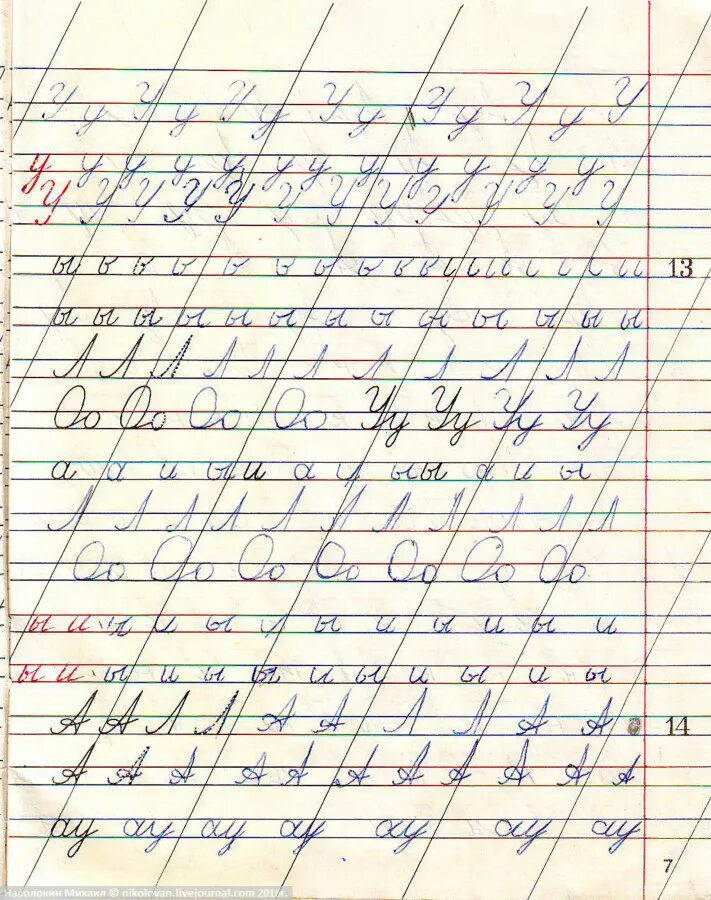 У у У у У у У у У у У у У
у у у у у у у у у у у у
У У У У У У У У У У У У
13
ы ы ы ы ы ы ы ы ы ы ы ы ы
Л Л Л Л Л Л Л Л Л Л Л
Оо Оо Оо Оо Уу Уу Уу Уу
а а и ы и а и ы ы а и ы
Л Л Л Л Л Л Л Л Л Л Л
Оо Оо Оо Оо Оо Оо Оо
ы и ы и ы и ы и ы и ы и
ы и ы и ы ы и ы и ы и ы
А А Л Л А А Л Л А А 14
А А А А А А А А А А А
ау ау ау ау ау ау ау
7
Насолокин Михаил © nikolovan.livejournal.com 2016г.